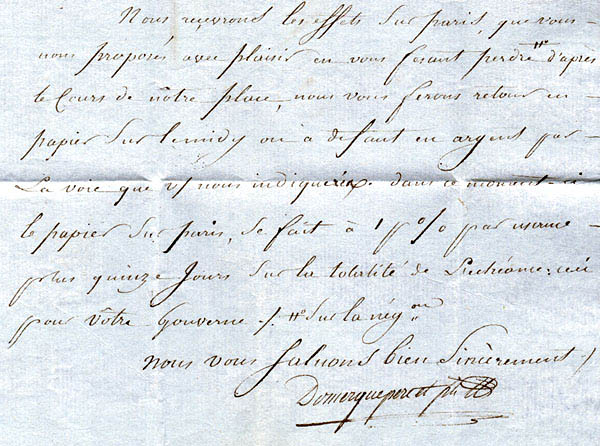 Nous reçevrons les effets sur paris, que vous
nous proposés avec plaisir en vous fesant perdre d'après
le Cours de nôtre place, nous vous ferons retour en
papier sur le midy ou a defaut en argent par
La voie que v/ nous indiquerés. dans ce moment-ci
le papier sur paris, se fait à 1 p% par usance
plus quinze Jours sur la totalité de L'echéance; ceci
pour vôtre Gouverne /. sur la nég.on
nous vous saluons bien Sincèrement /
Domergue pere et fils